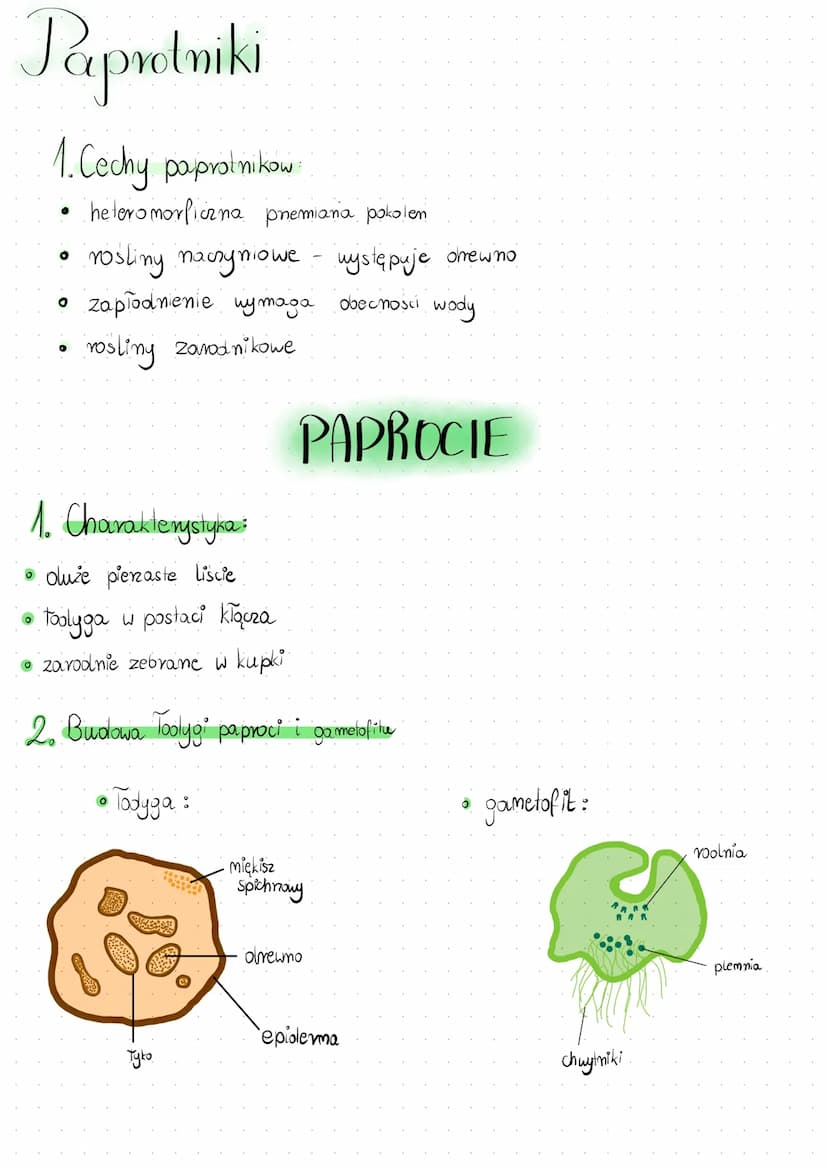 Paprotniki
1. Cechy paprotników:
• heteromorficzna przemiana pokoleń
• rośliny naczyniowe - występuje drewno
• zapłodnienie wymaga obecności wody
• rośliny zarodnikowe
PAPROCIE
1. Charakterystyka:
• duże pierzaste liście
• łodyga w postaci kłącza
• zarodnie zebrane w kupki
2. Budowa łodygi paproci i gametofitu
• łodyga:
• gametofit:
miękisz
spichrzowy
drewno
epiderma
łyko
rodnia
plemnia
chwytniki